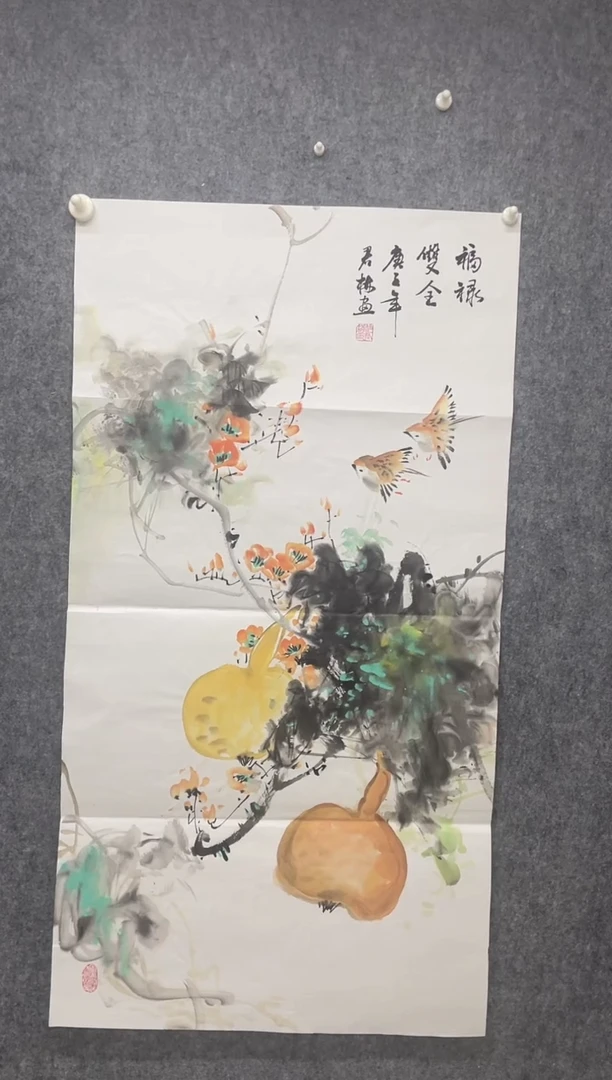 福禄
雙全
庚子年
君梅画